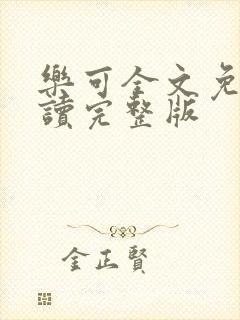 樂可全文免
讀完整版
金正賢